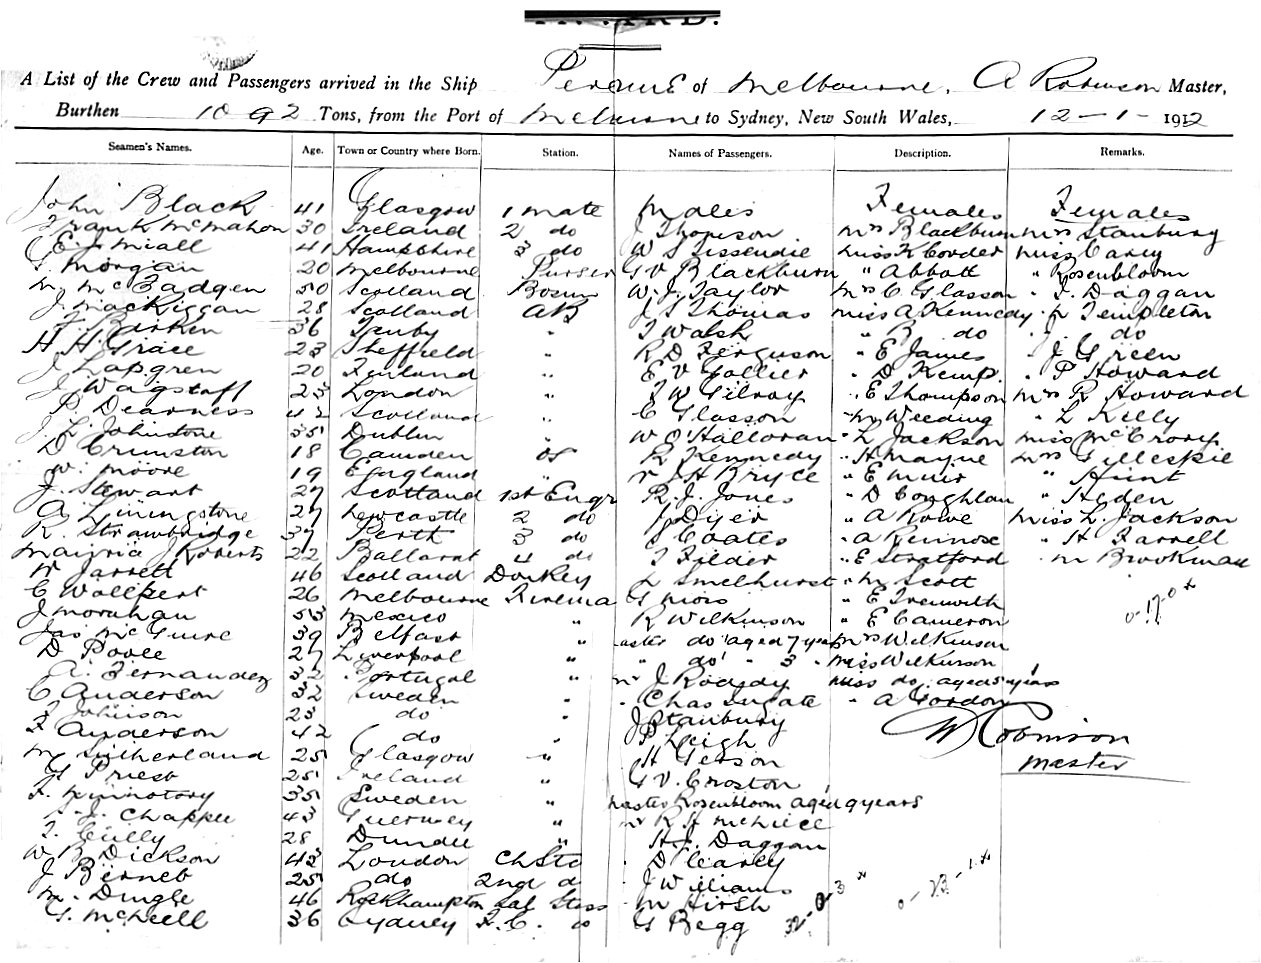 A List of the Crew and Passengers arrived in the Ship of Melbourne, A Robinson Master,
Burthen 1092 Tons, from the Port of Melbourne to Sydney, New South Wales, 12-1-1912
Seamen's Names. Age. Town or Country where Born. Station. Names of Passengers. Description. Remarks.
John Black 41 Glasgow 1 mate Males Females Females
Frank McMahon 30 Ireland 2 do J Thomson Mrs Blackburn Mrs Stanbury
E. J. Miall 41 Hampshire 3 do W S Tissendie Miss K Corder Miss Carey
G. Morgan 20 Melbourne Purser G V Blackburn " Abbott " Rosenbloom
M McFadgen 50 Scotland Bosun W. J. Taylor Mrs C Glasson " F. Daggan
J. MacKiggan 28 Scotland AB J S Thomas Miss A Kennedy " Templeton
F. Barken 36 Tenby " T Walsh " B do " J. do
H H Grace 23 Sheffield " R D Ferguson " E James " J Green
J Lapgren 20 Finland " E V Gollier " D Kemp. " P Howard
J Wagstaff 23 London " T W Gilroy " E Thompson Mrs R Howard
P. Dearness 42 Scotland " C Glasson " M Weeding " L Kelly
J L Johnstone 35 Dublin " W O'Halloran " L Jackson Miss McCrory
D Crimston 18 Camden OS R Kennedy " H Mayne Mrs Gillespie
W. Moore 19 England " J H Bryce " E Muir " Hunt
J. Stewart 27 Scotland 1st Engr R. J. Jones " D Coughlan " Hgden
A Livingstone 27 Newcastle 2 do J Dyer " A Rowe Miss L. Jackson
R. Strawbridge 37 Perth 3 do J Coates " A Rennox " H Farrell
J Roberts 22 Ballarat 4 do T Filder " E Stratford " M Brookman
W Jarrett 46 Scotland Donkey L Smelhurst " M Scott
C Wollpert 26 Melbourne Firema G Mois " E Trenwith
J Monahan 53 Mexico " R Wilkinson " E Cameron
Jas McGuire 39 Belfast " Master do aged 7 years Mrs Wilkinson
D Poole 27 Liverpool " " do " 3 " Miss Wilkinson
A. Fernandez 32 Portugal " Mr J Roddy Miss do aged 5 years
C Anderson 32 Sweden " " Chas Sugate " A Gordon
J Johnson 23 do " J Stanbury
F Anderson 42 do " P Leigh A Robinson
M Sutherland 25 Glasgow " H Gerson Master
G Priest 25 Ireland " G V. Croston
F. 35 Sweden " Master Rosenbloom aged 9 years
J. Chappel 43 Guernsey " Mr R H McNiece
T. Cully 28 Dundee " H. J. Daggan
W B Dickson 42 London Ch Std " D Carey
J Berneb 25 do 2nd d " J Williams
M. Dingle 46 Rockhampton Sal Stess " M Hirsh
G. McNeill 36 Sydney F. C. " G Begg